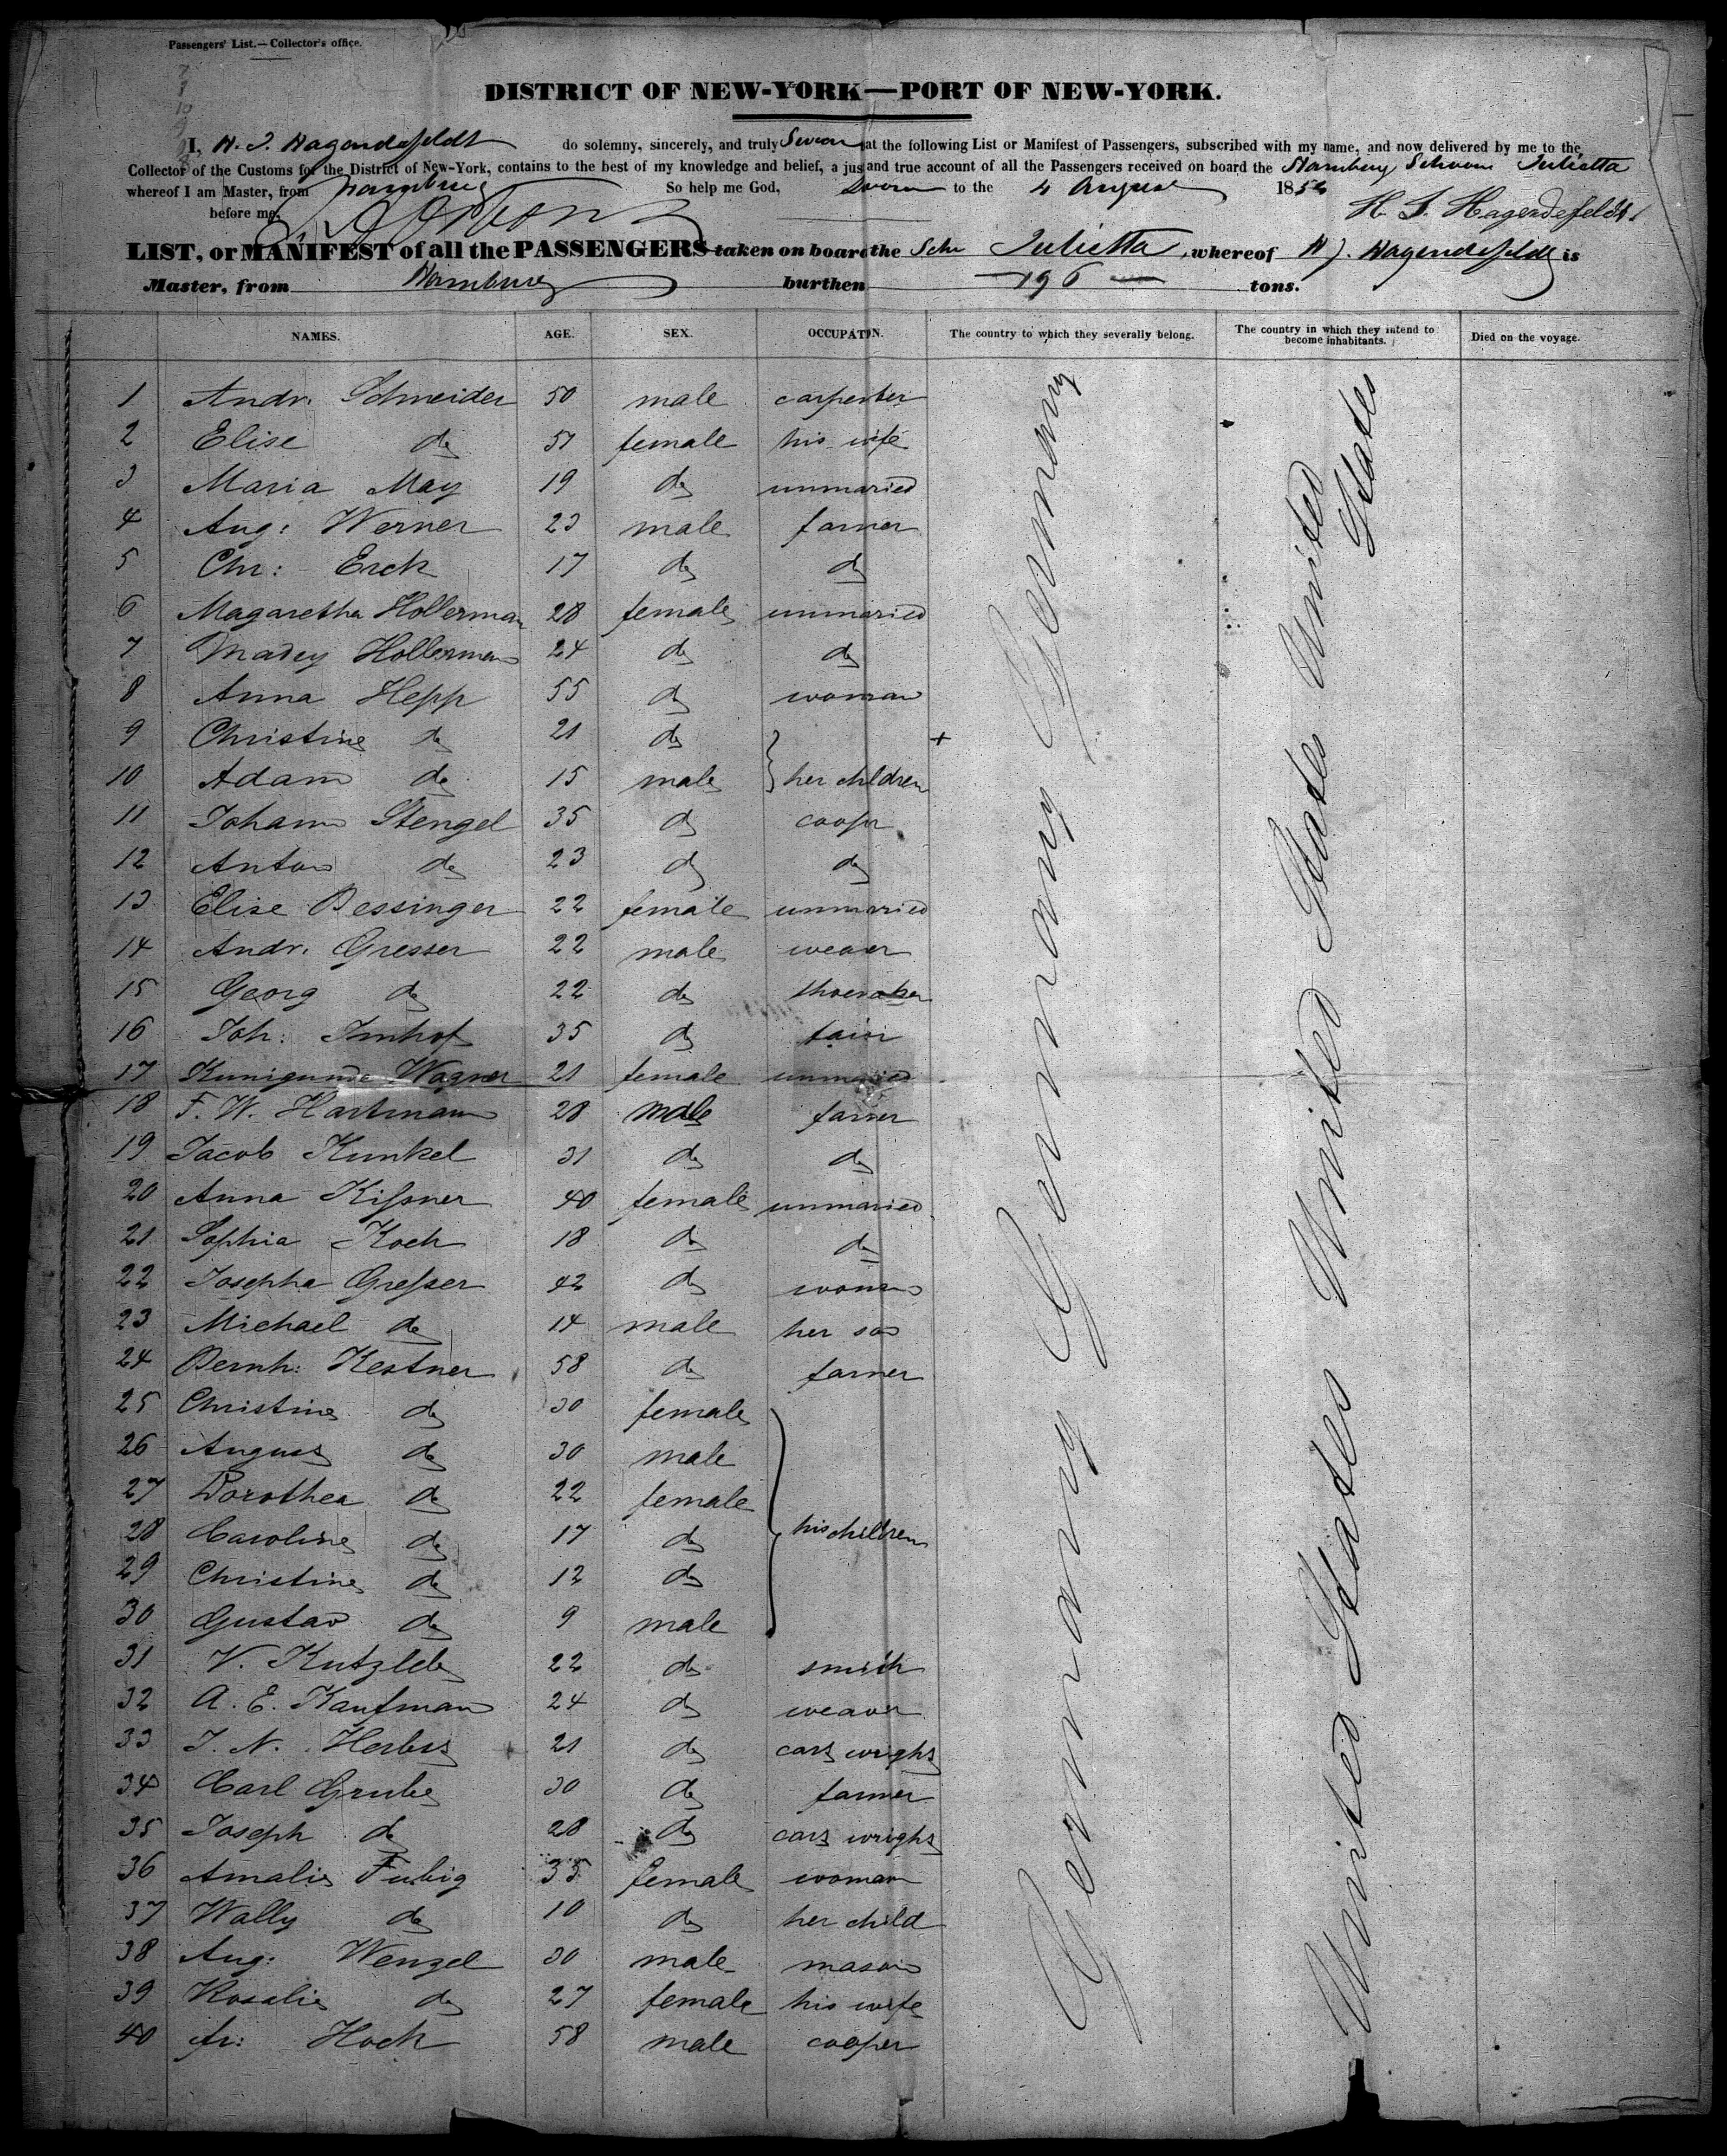 Passengers' List.—Collector's office.
DISTRICT OF NEW-YORK—PORT OF NEW-YORK.
I, H. J. Hagendefeldt do solemny, sincerely, and truly Swear at the following List or Manifest of Passengers, subscribed with my name, and now delivered by me to the
Collector of the Customs for the District of New-York, contains to the best of my knowledge and belief, a jus and true account of all the Passengers received on board the Hamburg Schoon Julietta
whereof I am Master, from Hamburg So help me God, Sworn to the 4 August 185
before me, H. J. Hagendefeldt
LIST, or MANIFEST of all the PASSENGERS taken on board the Schr Julietta, whereof H J. Hagendefeldt is
Master, from Hamburg burthen 196 tons.
NAMES. AGE. SEX. OCCUPATIN. The country to which they severally belong. The country in which they intend to become inhabitants. Died on the voyage.
1 Andr. Schneider 50 male carpenter
2 Elise do 51 female his wife
3 Maria May 19 do unmaried
4 Aug: Werner 23 male farmer
5 Chr: Erck 17 do do
6 Magaretha Hollerman 28 female unmaried
7 Hollerman 24 do do
8 Anna Hepp 55 do woman
9 Christine do 21 do
10 Adam do 15 male her children
11 Johann Stengel 35 do cooper
12 Anton do 23 do do
13 Elise Bessinger 22 female unmaried
14 Andr. Gresser 22 male weaver
15 Georg do 22 do shoemaker
16 Joh: Imhof 35 do
17 Kunigunde Wagner 21 female unmaried
18 F. W. Hartmann 28 male farmer
19 Jacob Kunkel 31 do do
20 Anna Kißner 40 female unmaried
21 Sophia Koch 18 do do
22 Josepha Greßer 42 do woman
23 Michael do 14 male her son
24 Bernh: Kestner 58 do farmer
25 Christine do 30 female
26 August do 30 male
27 Dorothea do 22 female
28 Caroline do 17 do his children
29 Christine do 12 do
30 Gustav do 9 male
31 V. Kutzleb 22 do smith
32 A. E. Kaufmann 24 do weaver
33 J. N. Herbst 21 do cart wright
34 Carl Grube 30 do farmer
35 Joseph do 28 do cart wright
36 Amalie Fubig 35 female woman
37 Wally do 10 do her child
38 Aug: Wenzel 30 male mason
39 Rosalie do 27 female his wife
40 Fr: Hock 58 male cooper
Germany Germany Germany Germany
United States United States United States